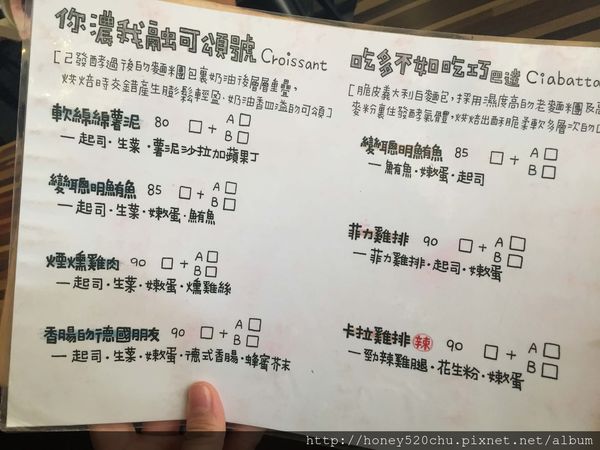 你濃我融可頌號 Croissant
[已發酵過後的麵糰包裹奶油後層層重疊,
烘焙時交錯產生膨鬆輕盈,奶油香四溢的可頌]
軟綿綿薯泥 80 □ + A □ B □
一起司·生菜·薯泥沙拉加蘋果丁
變聰明鮪魚 85 □ + A □ B □
一起司·生菜·嫩蛋·鮪魚
煙燻雞肉 90 □ + A □ B □
一起司·生菜·嫩蛋·燻雞絲
香腸的德國朋友 90 □ + A □ B □
一起司·生菜·嫩蛋·德式香腸·蜂蜜芥末
吃多不如吃巧巴達 Ciabatta
[脆皮義大利白麵包,採用濕度高的老麵糰及高
麥粉裹住發酵氣體,烘焙出酥脆柔軟多層次的口
變聰明鮪魚 85 □ + A □ B □
一鮪魚·嫩蛋·起司
菲力雞排 90 □ + A □ B □
一菲力雞排·起司·嫩蛋
卡拉雞排 辣 90 □ + A □ B □
一勁辣雞腿·花生粉·嫩蛋
http://honey520chu.pixnet.net/album